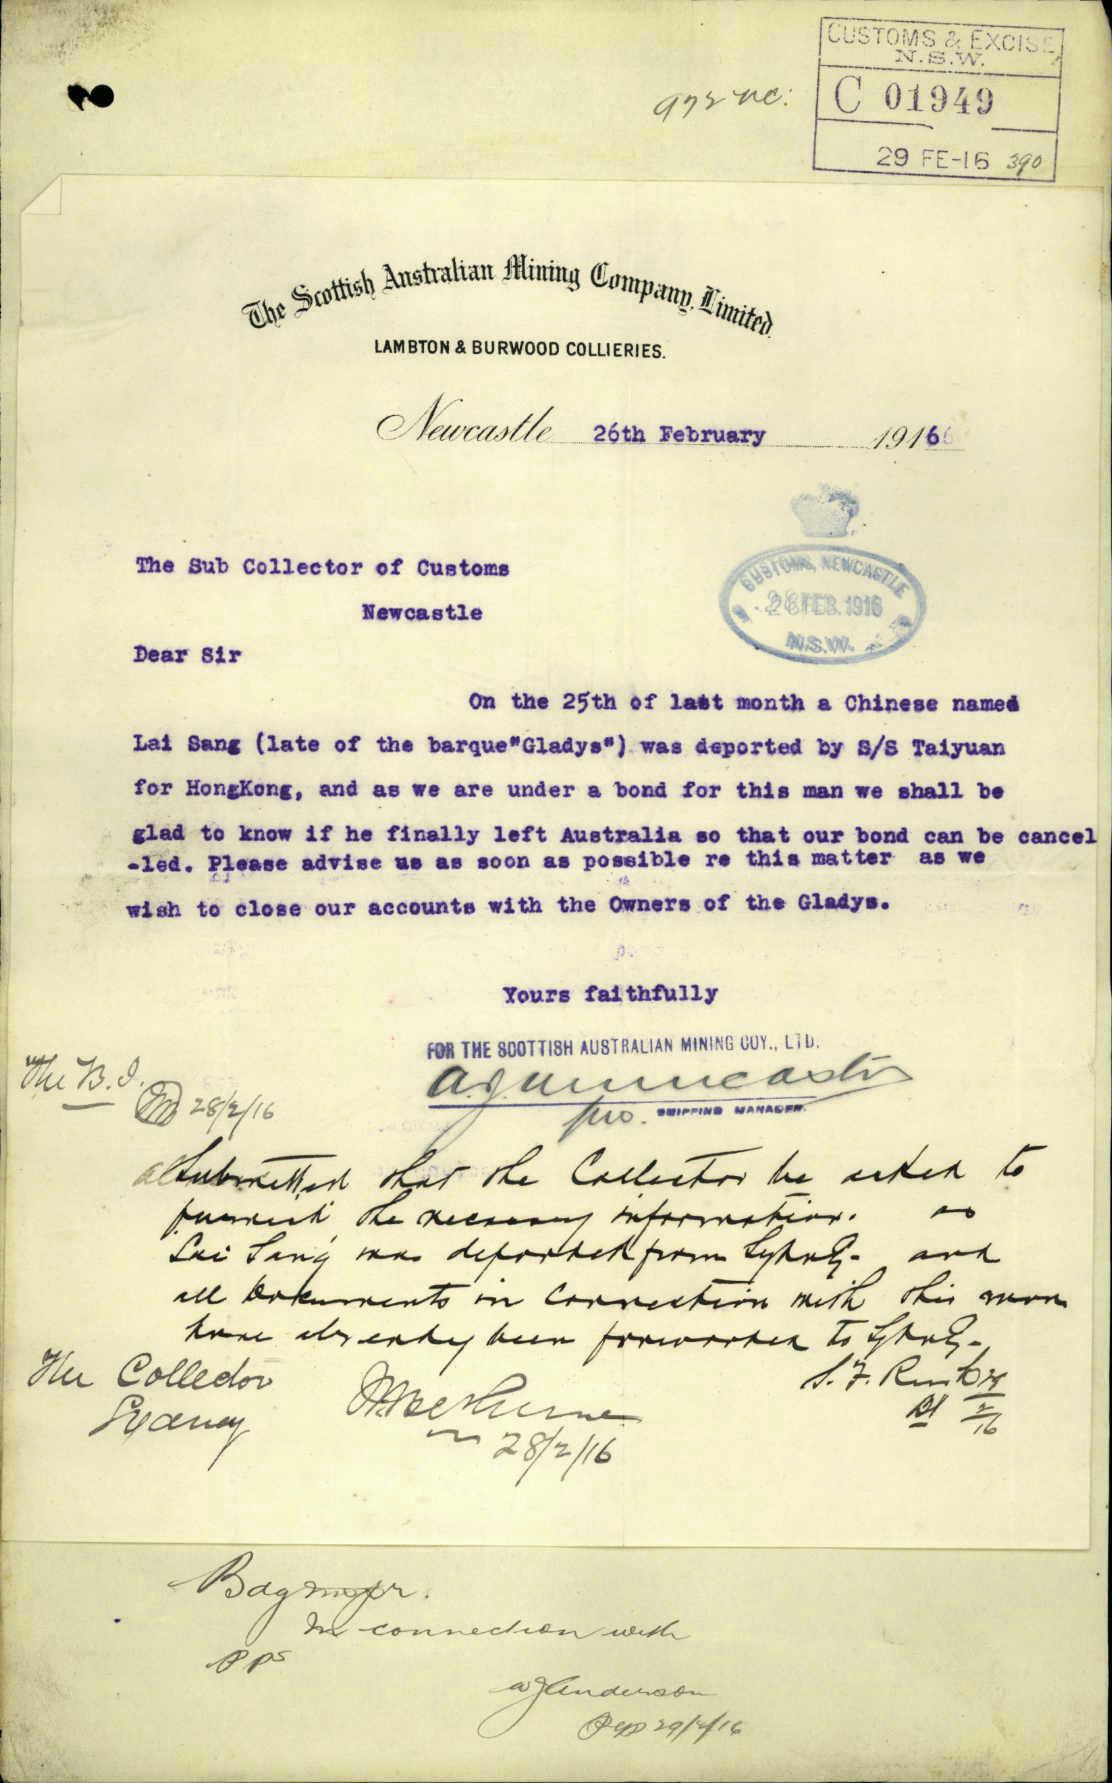 CUSTOMS & EXCISE
N.S.W.
C 01949
29 FE-16 390
The Scottish Australian Mining Company, Limited.
LAMBTON & BURWOOD COLLIERIES.
Newcastle 26th February 1916
CUSTOMS, NEWCASTLE
26 FEB. 1916
N.S.W.
The Sub Collector of Customs
Newcastle
Dear Sir
On the 25th of last month a Chinese named
Lai Sang (late of the barque"Gladys") was deported by S/S Taiyuan
for HongKong, and as we are under a bond for this man we shall be
glad to know if he finally left Australia so that our bond can be cancel
-led. Please advise us as soon as possible re this matter as we
wish to close our accounts with the Owners of the Gladys.
Yours faithfully
FOR THE SCOTTISH AUSTRALIAN MINING COY., LTD.
pro. SHIPPING MANAGER.
The B. I.
28/2/16
Submitted that the Collector be asked to
furnish the necessary information. as
Lai Sang was deported from Sydney. and
all Documents in Connection with this man
have already been forwarded to Sydney.
The Collector
Sydney
28/2/16
S. F.
In connection with
pps
29/2/16